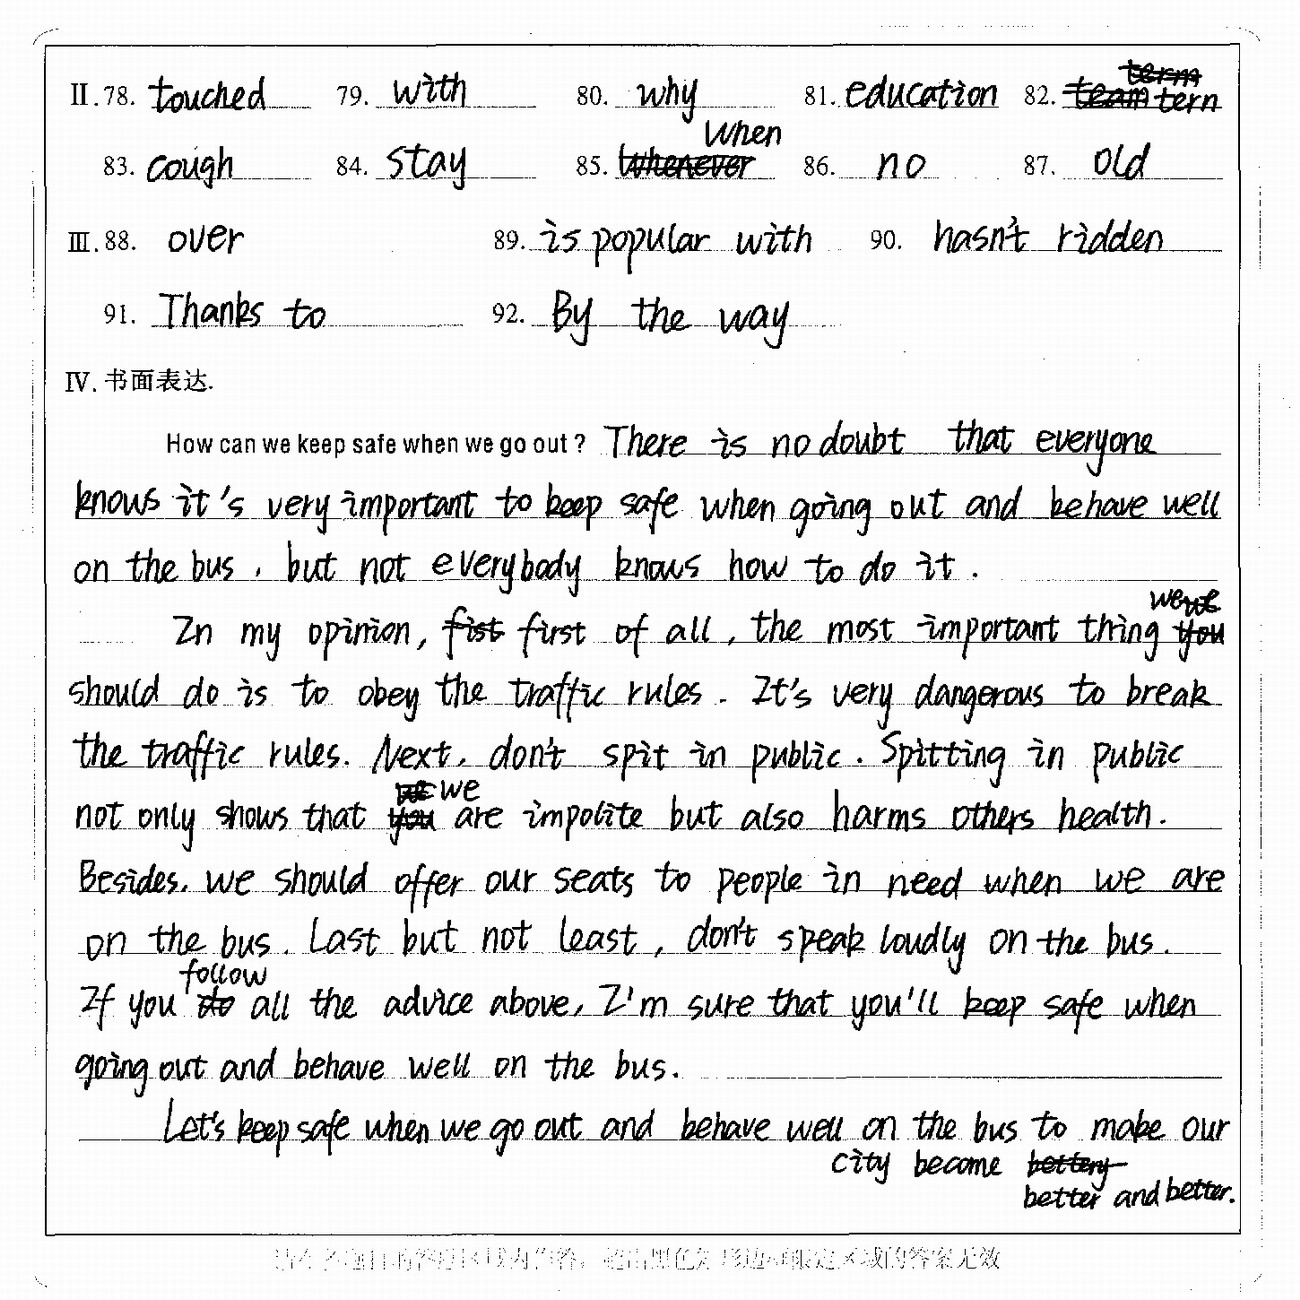 II.78. touched 79. with 80. why 81. education 82. tern
83. cough 84. stay 85. When 86. no 87. old
III.88. over 89. is popular with 90. hasn't ridden
91. Thanks to 92. By the way
IV. 书面表达.
How can we keep safe when we go out? There is no doubt that everyone
knows it's very important to keep safe when going out and behave well
on the bus, but not everybody knows how to do it.
In my opinion, first of all, the most important thing we
should do is to obey the traffic rules. It's very dangerous to break
the traffic rules. Next, don't spit in public. Spitting in public
not only shows that we are impolite but also harms others health.
Besides, we should offer our seats to people in need when we are
on the bus. Last but not least, don't speak loudly on the bus.
If you follow all the advice above, I'm sure that you'll keep safe when
going out and behave well on the bus.
Let's keep safe when we go out and behave well on the bus to make our
city become
better and better.